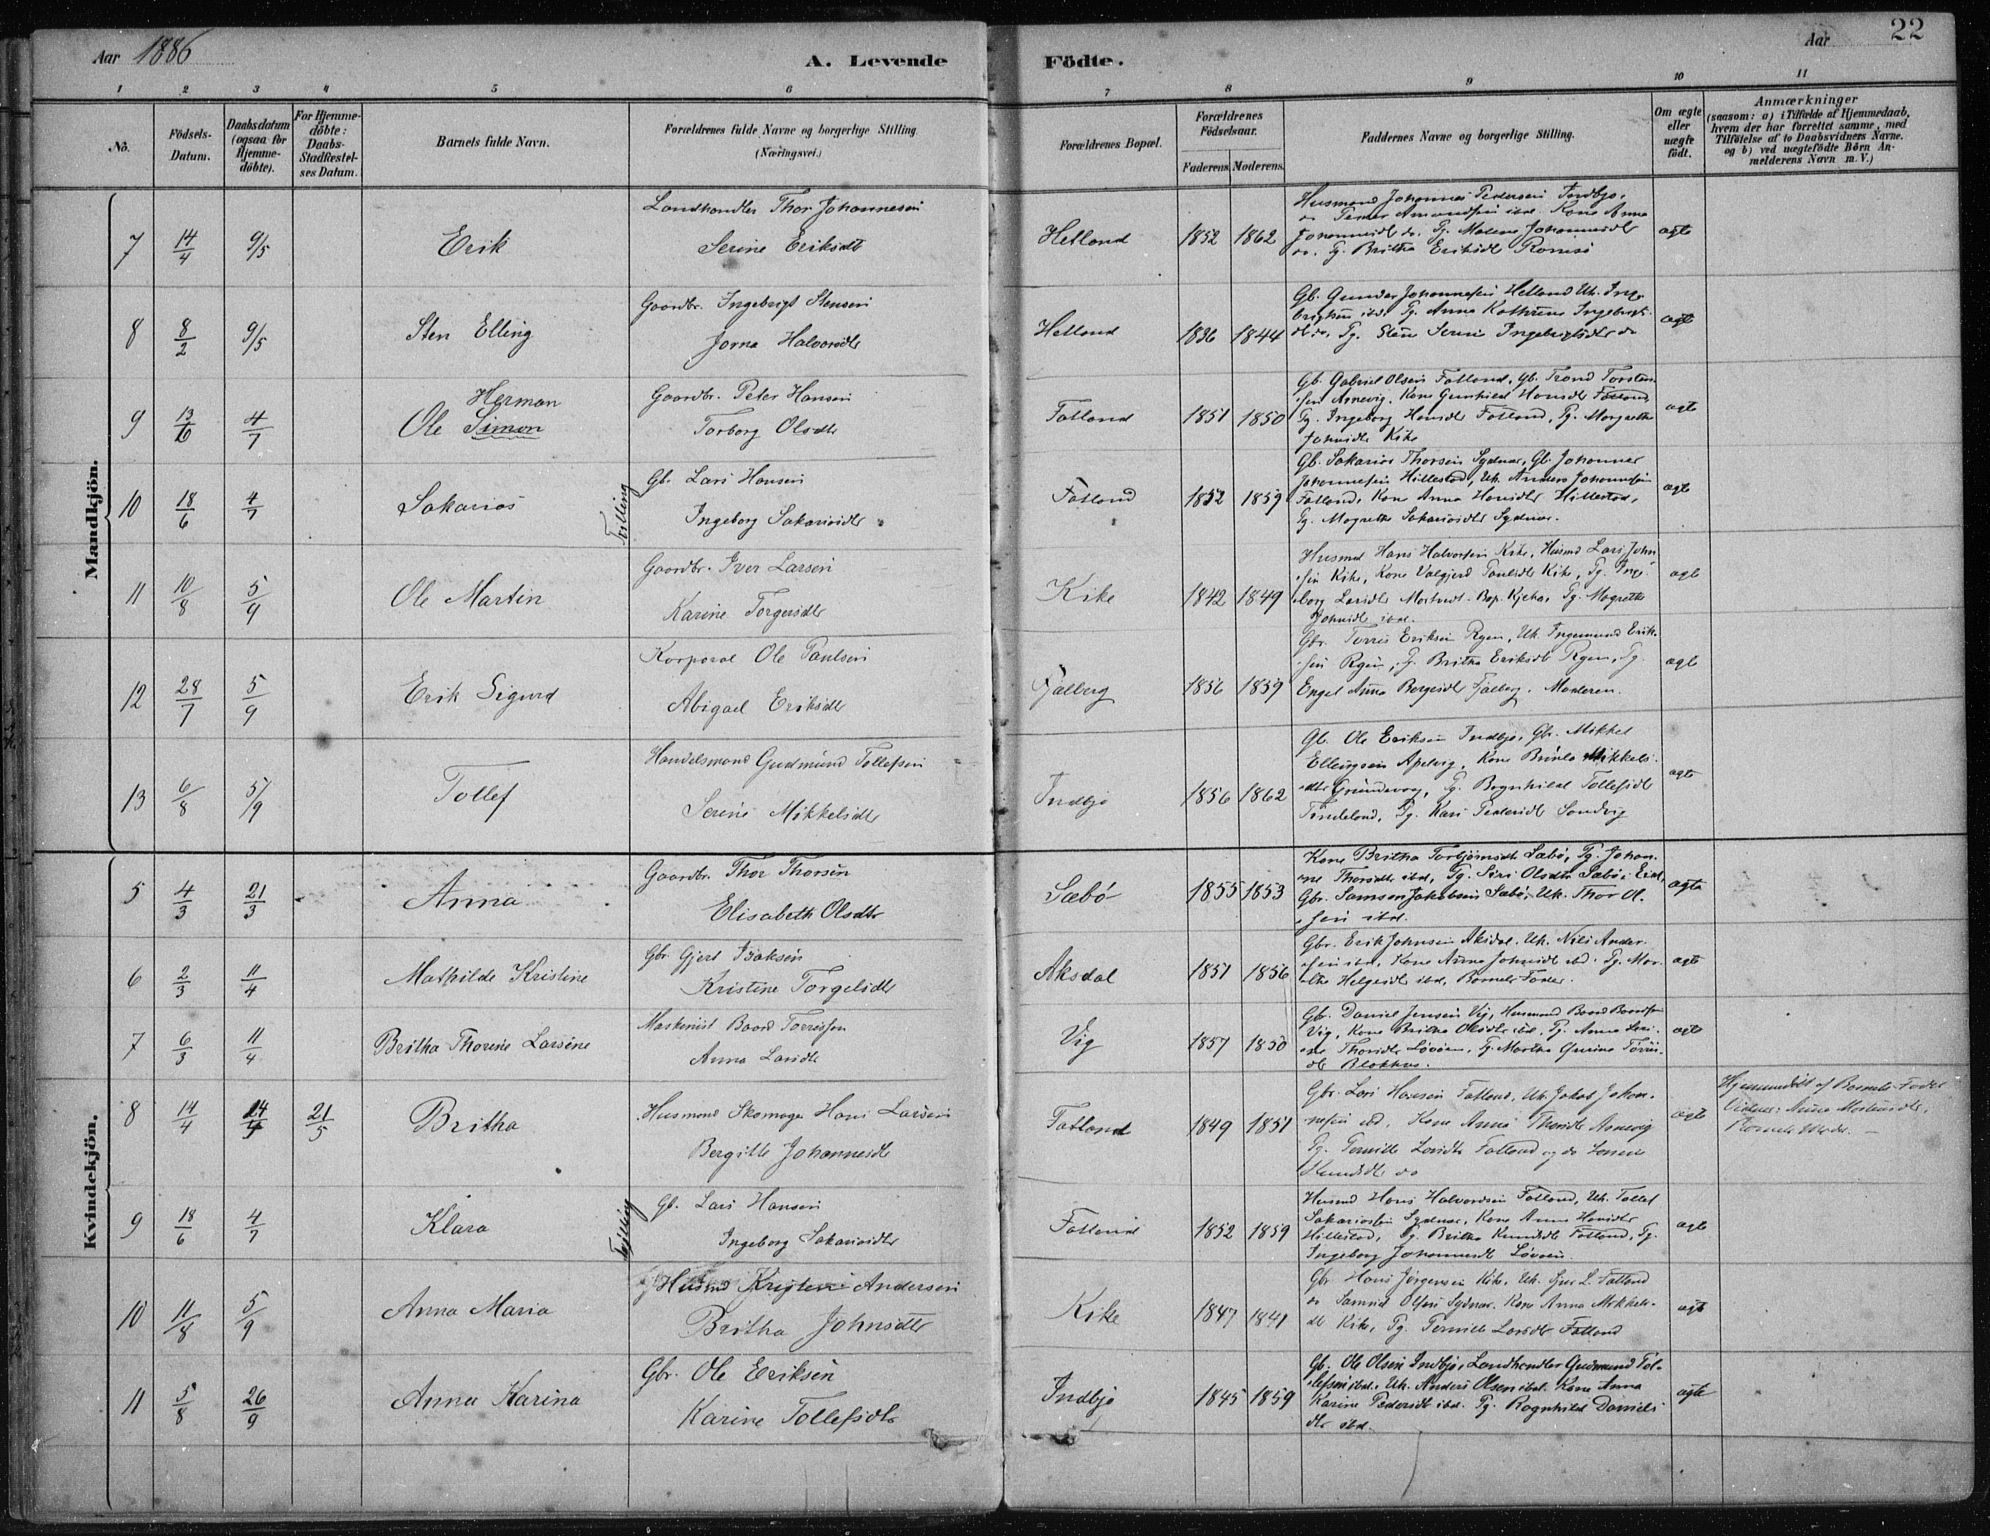 Aar 1886
A. Levende Födte.
Aar
22
1 2 3 4 5 6 7 8 9 10 11
No.
Födsels-Datum.
Daabsdatum (ogsaa for Hjemme-döbte).
For Hjemme-döbte: Daabs-Stadfæstel-ses Datum.
Barnets fulde Navn.
Forældrenes fulde Navne og borgerlige Stilling. (Næringsvei.)
Forældrenes Bopæl.
Forældrenes Födselsaar.
Faderens. Moderens.
Faddernes Navne og borgerlige Stilling.
Om ægte eller uægte födt.
Anmærkninger
(saasom: a) i Tilfælde af Hjemmedaab,
hvem der har forrettet samme, med
Tilföielse af to Daabsvidners Navne.
og b) ved uægtefödte Børn An-
melderens Navn m. V.)
Mandkjön.
7 14/4 9/5 Erik
Landhandler Thor Johannesen
Serine Eriksdtr
Hetland 1852 1862
Husmand Johannes Pedersen Indbjo,
do Peder Amundsen ibid. Kone Anna
Johannesdtr do. Pg. Malene Johannesdtr
do. Pg. Britha Eriksdtr
ægte
8 8/2 9/5 Sten Elling
Gaardbr. Ingebrigt Stensen
Jorna Halvorsdtr
Hetland 1836 1844
Gb. Gunder Johannesen Hetland Uk. Inge-
brigtsen ibid. Pg. Anna Kathrine Ingebrigts-
dtr do, Pg. Serine Ingebrigtsdtr do
ægte
9 13/6 4/7 Ole Simon
Herman
Gaardbr. Peter Hansen
Torborg Olsdtr
Fatland 1851 1850
Gb. Gabriel Olsen Fatland, Gb. Trond Torsten-
sen Arnevig, Kone Gunhild Hansdtr Fatland
Pg. Ingeborg Hansdtr Fatland, Pg. Margrethe
Johnsdtr Kike
ægte
10 18/6 4/7 Sakarias
Tvilling
Gb. Lars Hansen
Ingeborg Sakariasdtr
Fatland 1852 1859
Gb. Sakarias Thorsen Sydnæs, Gb. Johannes
Johannesen Hillestad, Uk. Anders Johannesen
Fatland, Kone Anna Hansdtr Hillestad,
Pg. Magrethe Sakariasdtr Sydnæs.
ægte
11 10/8 5/9 Ole Martin
Gaardbr. Iver Larsen
Karine Torgersdtr
Kike 1842 1849
Husmd Hans Halvorsen Kike, Husmd Lars John-
sen Kike, Kone Valgjerd Paulsdtr Kike, Pg. Inge-
borg Larsdtr Pg. Magrethe
Johnsdtr ibid.
ægte
12 28/7 5/9 Erik Sigurd
Korporal Ole Paulsen
Abigael Eriksdtr
Fjalberg 1856 1859
Gbr. Torris Eriksen Rgen, Uk. Ingemund Erik-
sen Rgen, Pg. Britha Eriksdtr Rgen, Pg.
Engel Anna Borgesdtr Fjalberg. Moderen.
ægte
13 6/8 5/9 Tollef
Handelsmand Gudmund Tollefsen
Serine Mikkelsdtr
Indbjo 1856 1862
Gb. Ole Eriksen Indbjo, Gb. Mikkel
Ellingsen Apeberg, Kone Brunla Mikkels-
dtr Grundevag, Pg. Rognhild Tollefsdtr
Tindeland, Pg. Kari Pedersdtr Sandvig
ægte
Kvindekjön.
5 4/3 21/3 Anna
Gaardbr. Thor Thorsen
Elisabeth Olsdtr
Sæbö 1855 1853
Kone Britha Torbjörnsdtr Sæbö, Pg. Johan-
ne Thorsdtr ibid, Pg. Siri Olsdtr Sæbö,
Gbr. Samson Jakobsen Sæbö, Uk. Thor Ol-
sen ibid.
ægte
6 2/3 11/4 Mathilde Kristine
Gbr. Gjert Isaksen
Kristine Torgelsdtr
Aksdal 1851 1856
Gbr. Erik Johnsen Aksdal, Uk. Nils Ander-
sen ibid, Kone Anna Johnsdtr ibd. Pg. Mar-
the Helgesdtr ibid, Barnets Fader.
ægte
7 6/3 11/4 Britha Thorine Larsine
Maskinist Baard Torrissen
Anna Larsdtr
Vig 1857 1850
Gbr. Daniel Jensen Vig, Husmand Baard Baardsen
Vig, Kone Britha Olsdtr ibid, Pg. Anna Lari-
ne Thorsdtr Lövöen, Pg. Martha Gurine Törris-
dtr Blokkus.
ægte
8 14/4 21/5 Britha
Husmand Skomager Hans Larsen
Bergitte Johannesdtr
Fatland 1849 1851
Gbr. Lars Hansen Fatland, Uk. Jakob Johan-
nesen ibid, Kone Anna Thorsdtr Arnevig
Pg. Pernille Larsdtr Fatland og do
Knudsdtr do
ægte
Hjemmedöbt af Barnets Fader
Vidner: Anna Mortensdtr,
Barnets Moder.
9 18/6 4/7 Klara
Tvilling
Gb. Lars Hansen
Ingeborg Sakariasdtr
Fatland 1852 1859
Husmd Hans Halvordsen Fatland, Uk. Tollef
Sakariassen Sydnæs, Kone Anna Hansdtr
Hillestad, Pg. Britha Knudsdtr Fatland, Pg.
Ingeborg Johannesdtr Lövöen.
ægte
10 11/8 5/9 Anna Maria
Husmd Kristen Andersen
Britha Johnsdtr
Kike 1847 1841
Gbr Hans Jörgensen Kike, Uk. L. Fatland
do Samuel Olsen Sydnæs. Kone Anna Mikkels-
dtr Kike, Pg. Pernille Larsdtr Fatland
ægte
11 5/8 26/9 Anna Karina
Gbr. Ole Eriksen
Karine Tollefsdtr
Indbjo 1845 1859
Gb. Ole Olsen Indbjo, Landhandler Gudmund Tol-
lefsen ibid. Uk. Anders Olsen ibid. Kone Anna
Karine Pedersdtr ibid. Pg. Rognhild Daniels-
dtr ibid.
ægte